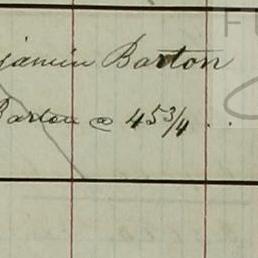 jamin Barton
Barton @ 45 3/4